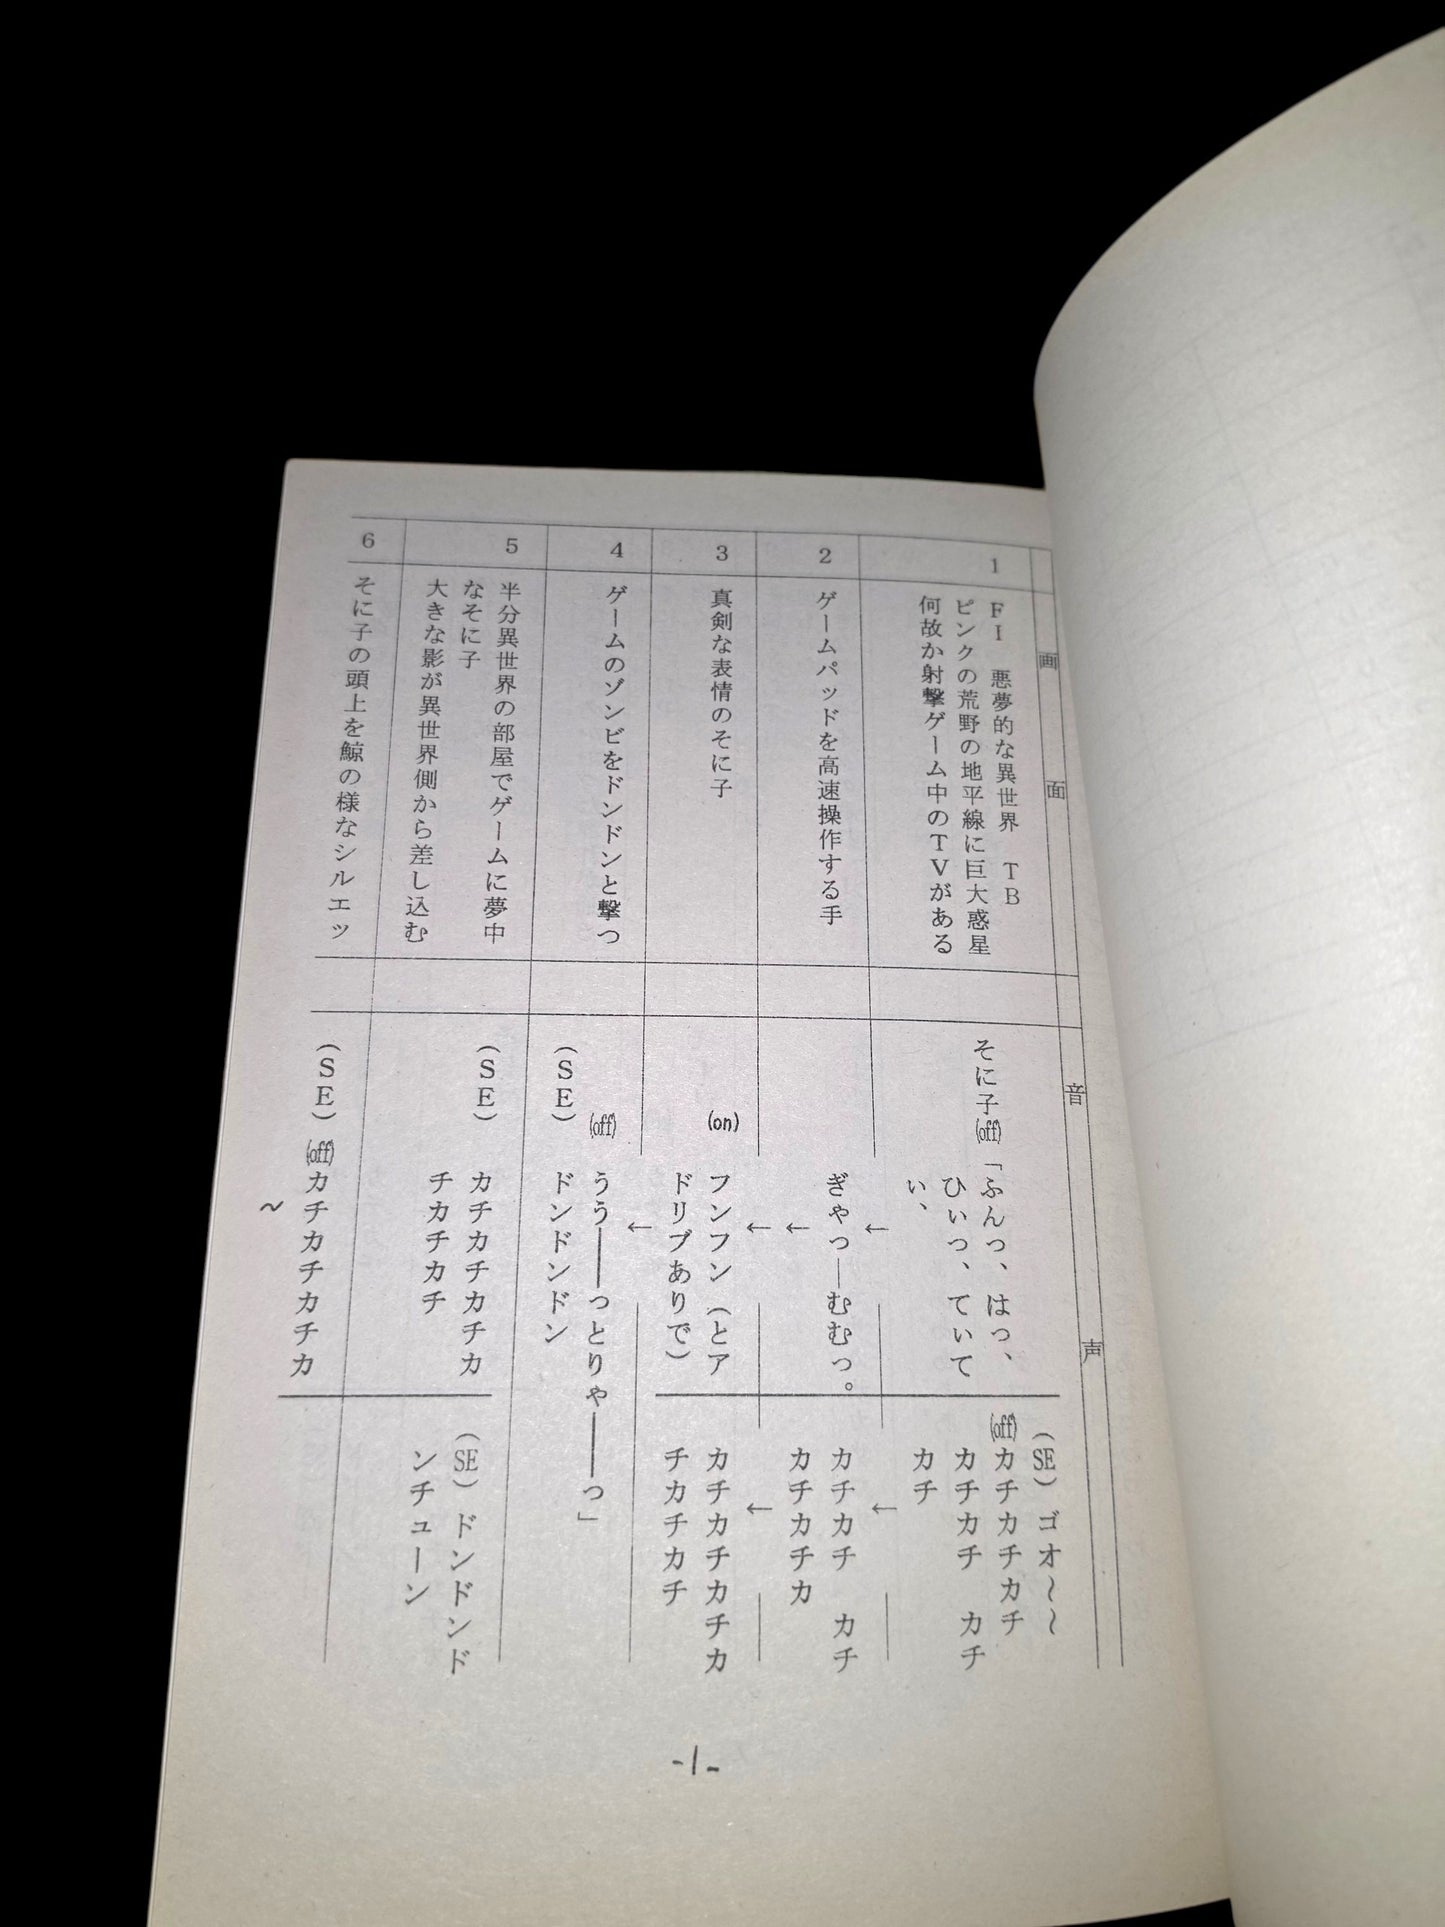 画面
音声
1
FI 悪夢的な異世界 TB
ピンクの荒野の地平線に巨大惑星
何故か射撃ゲーム中のTVがある
そに子(off)「ふんっ、はっ、
ひぃっ、ていて
い、
(SE)ゴオ～～
(off)カチカチカチ
カチカチ カチ
カチ
2
ゲームパッドを高速操作する手
←
ぎゃっ―むむっ。
←
←
カチカチ カチ
カチカチカ
3
真剣な表情のそに子
←
(on)
フンフン(とア
ドリブありで)
←
カチカチカチカ
チカチカチ
4
ゲームのゾンビをドンドンと撃つ
←
(off)
うう――っとりゃ――っ」
(SE)ドンドンドン
5
半分異世界の部屋でゲームに夢中
なそに子
大きな影が異世界側から差し込む
(SE)カチカチカチカ
チカチカチ
(SE)ドンドンド
ンチューン
6
そに子の頭上を鯨の様なシルエッ
(SE)(off)カチカチカチカ
～
-1-